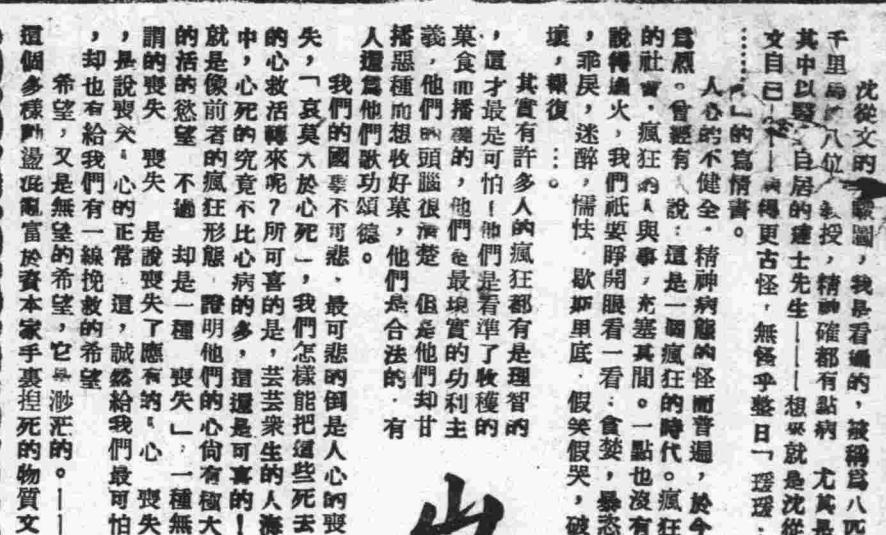 沈從文的　駿圖，我是看過的，被稱爲八匹
千里馬的八位　教授，精神確都有點病　尤其是
其中以醫　自居的達士先生——想來就是沈從
文自已——病得更古怪，無怪乎整日「瑗瑗，
……　」的寫情書。
人心的不健全．精神病態的怪而普遍，於今
爲烈。曾經有人說：這是一個瘋狂的時代。瘋狂
的社會，瘋狂的人與事，充塞其間。一點也沒有
說得過火，我們祇要睜開眼看一看：貪婪，暴恣
，乖戾，迷醉，懦怯　歇斯里底．假笑假哭，破
壞，報復…。
其實有許多人的瘋狂都有是理智的
，這才最是可怕！他們是看準了收穫的
菓食而播種的，他們是最現實的功利主
義，他們的頭腦很清楚　但是他們却甘
播惡種而想收好菓，他們是合法的　有
人還爲他們歌功頌德。
我們的國事不可悲．最可悲的倒是人心的喪
失，「哀莫大於心死」，我們怎樣能把這些死去
的心救活轉來呢？所可喜的是，芸芸衆生的人海
中，心死的究竟不比心病的多，這還是可喜的！
就是像前者的瘋狂形態　證明他們的心尙有極大
的活的慾望　不過　却是一種　喪失」，一種無
謂的喪失　喪失　是說喪失了應有的『心　喪失
，是說喪失　心的正常　這，誠然給我們最可怕
，却也有給我們有一線挽救的希望
希望，又是無望的希望，它是渺茫的。——
這個多樣動盪混亂富於資本家手裏揑死的物質文